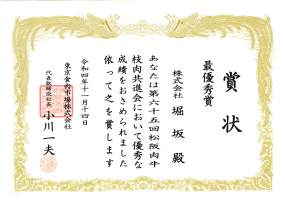 賞状
最優秀賞
株式会社 堀坂 殿
あなたは第六十五回松阪肉牛
枝肉共進会において優秀な
成績をおさめられました
依って之を賞します
令和四年十一月十四日
東京食肉市場株式会社
代表取締役社長 小川一夫